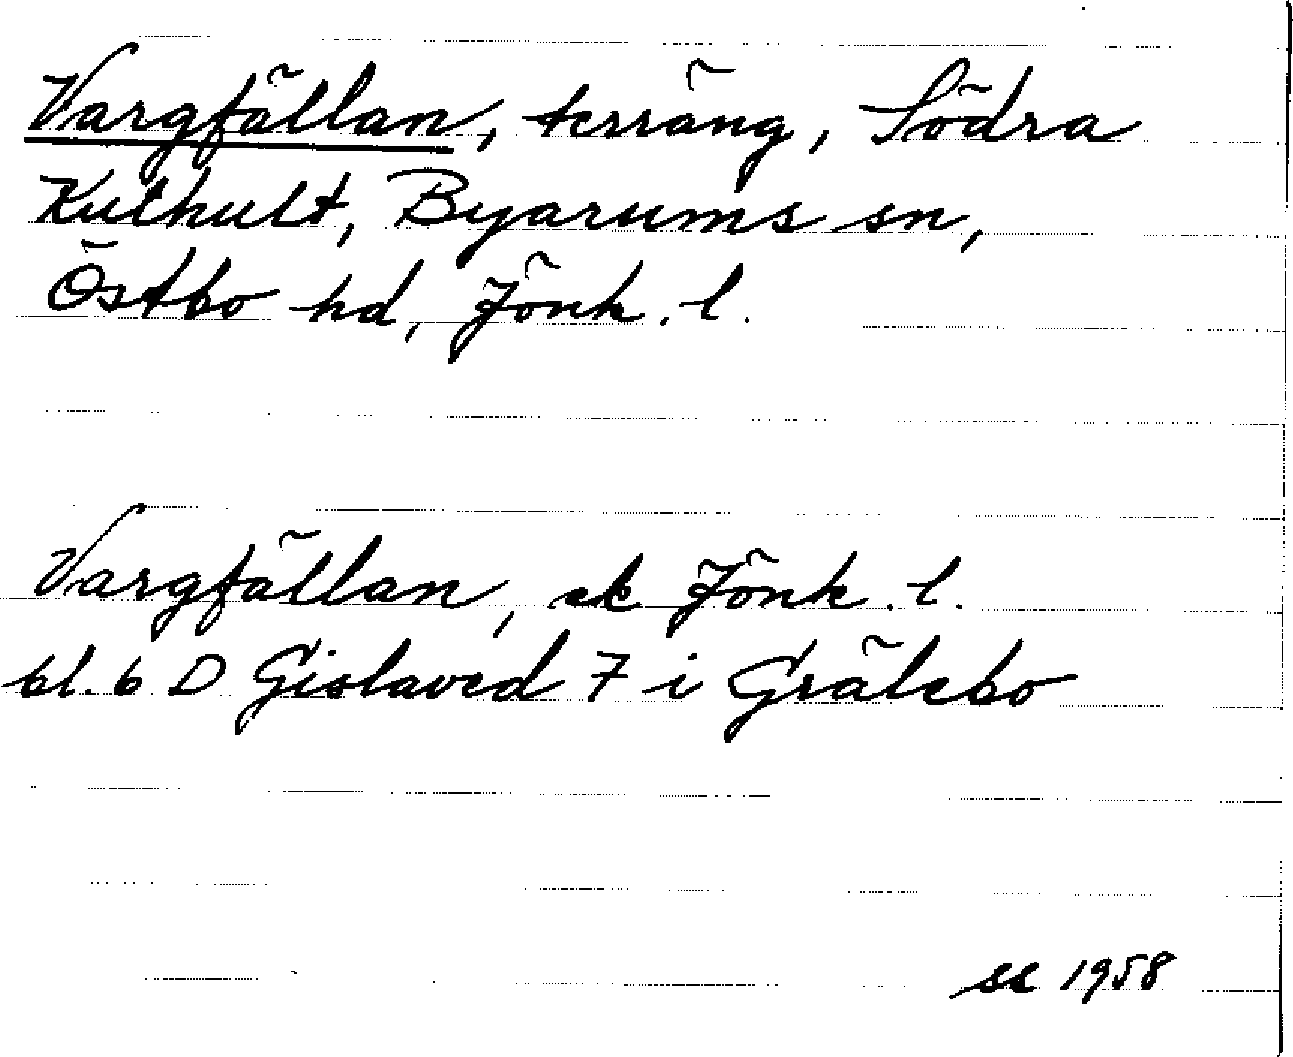 Vargfällan, terräng, Södra
Kulhult, Byarums sn,
Östbo hd, Jönk. l.
Vargfällan, ek Jönk. l.
bl. 6 D Gislaved 7 i Grälebo
1958